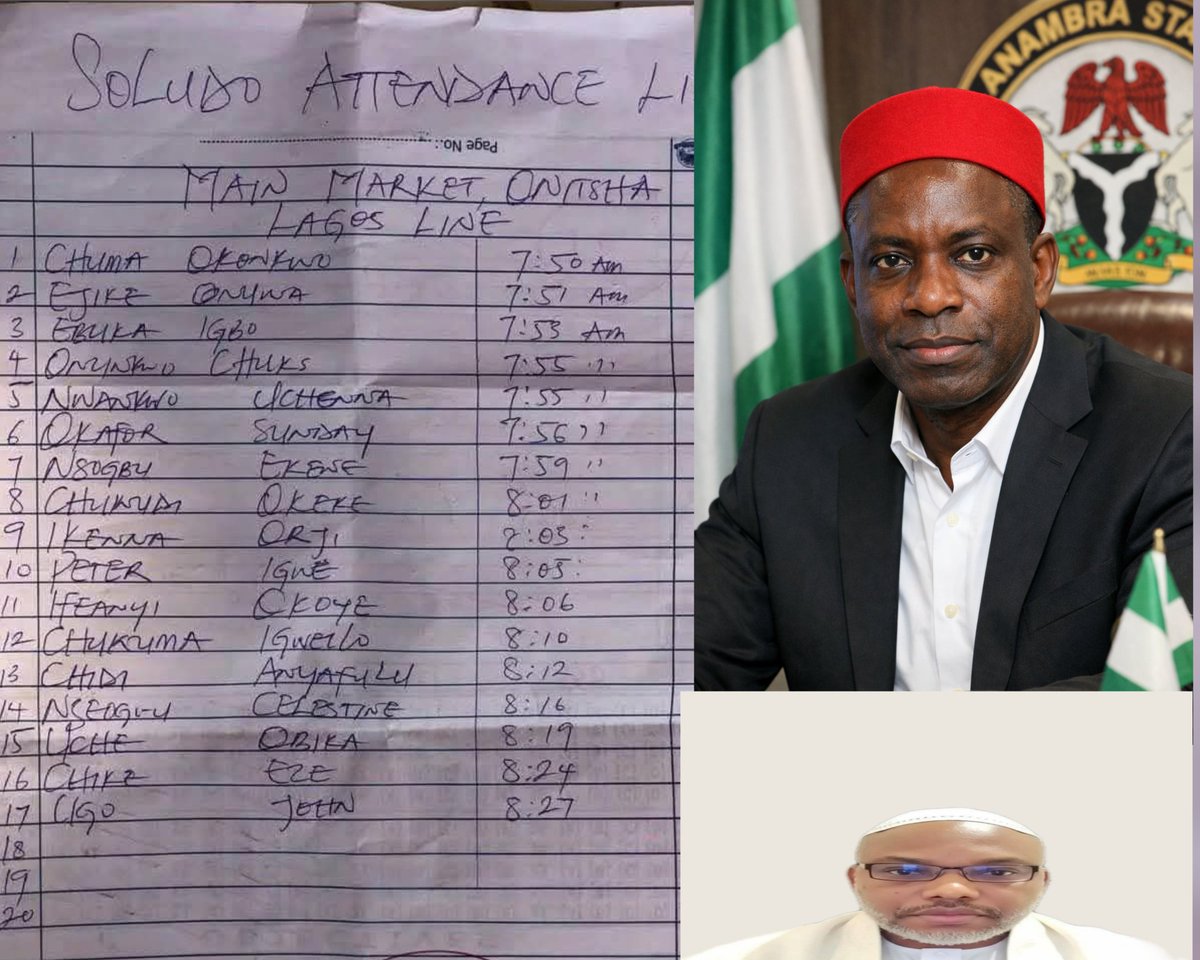 SOLUDO ATTENDANCE LI
Page No.:
MAIN MARKET, ONITSHA
LAGOS LINE
1 CHUMA OKONKWO 7:50 Am
2 EJIKE ONUWA 7:51 Am
3 EBUKA IGBO 7:53 Am
4 ONUNKWO CHUKS 7:55 ,,
5 NWANKWO UCHENNA 7:55 ,,
6 OKAFOR SUNDAY 7:56 ,,
7 NSOGBU EKENE 7:59 ,,
8 CHUKUDI OKEKE 8:01 ,,
9 IKENNA ORJI 8:03 :
10 PETER IGWE 8:05 :
11 IFEANYI OKOYE 8:06
12 CHUKUMA IGWEILO 8:10
13 CHIDI ANYAFULU 8:12
14 CELESTINE 8:16
15 UCHE OBIKA 8:19
16 CHIKE EZE 8:24
17 UGO JOHN 8:27
18
19
20
ANAMBRA STA